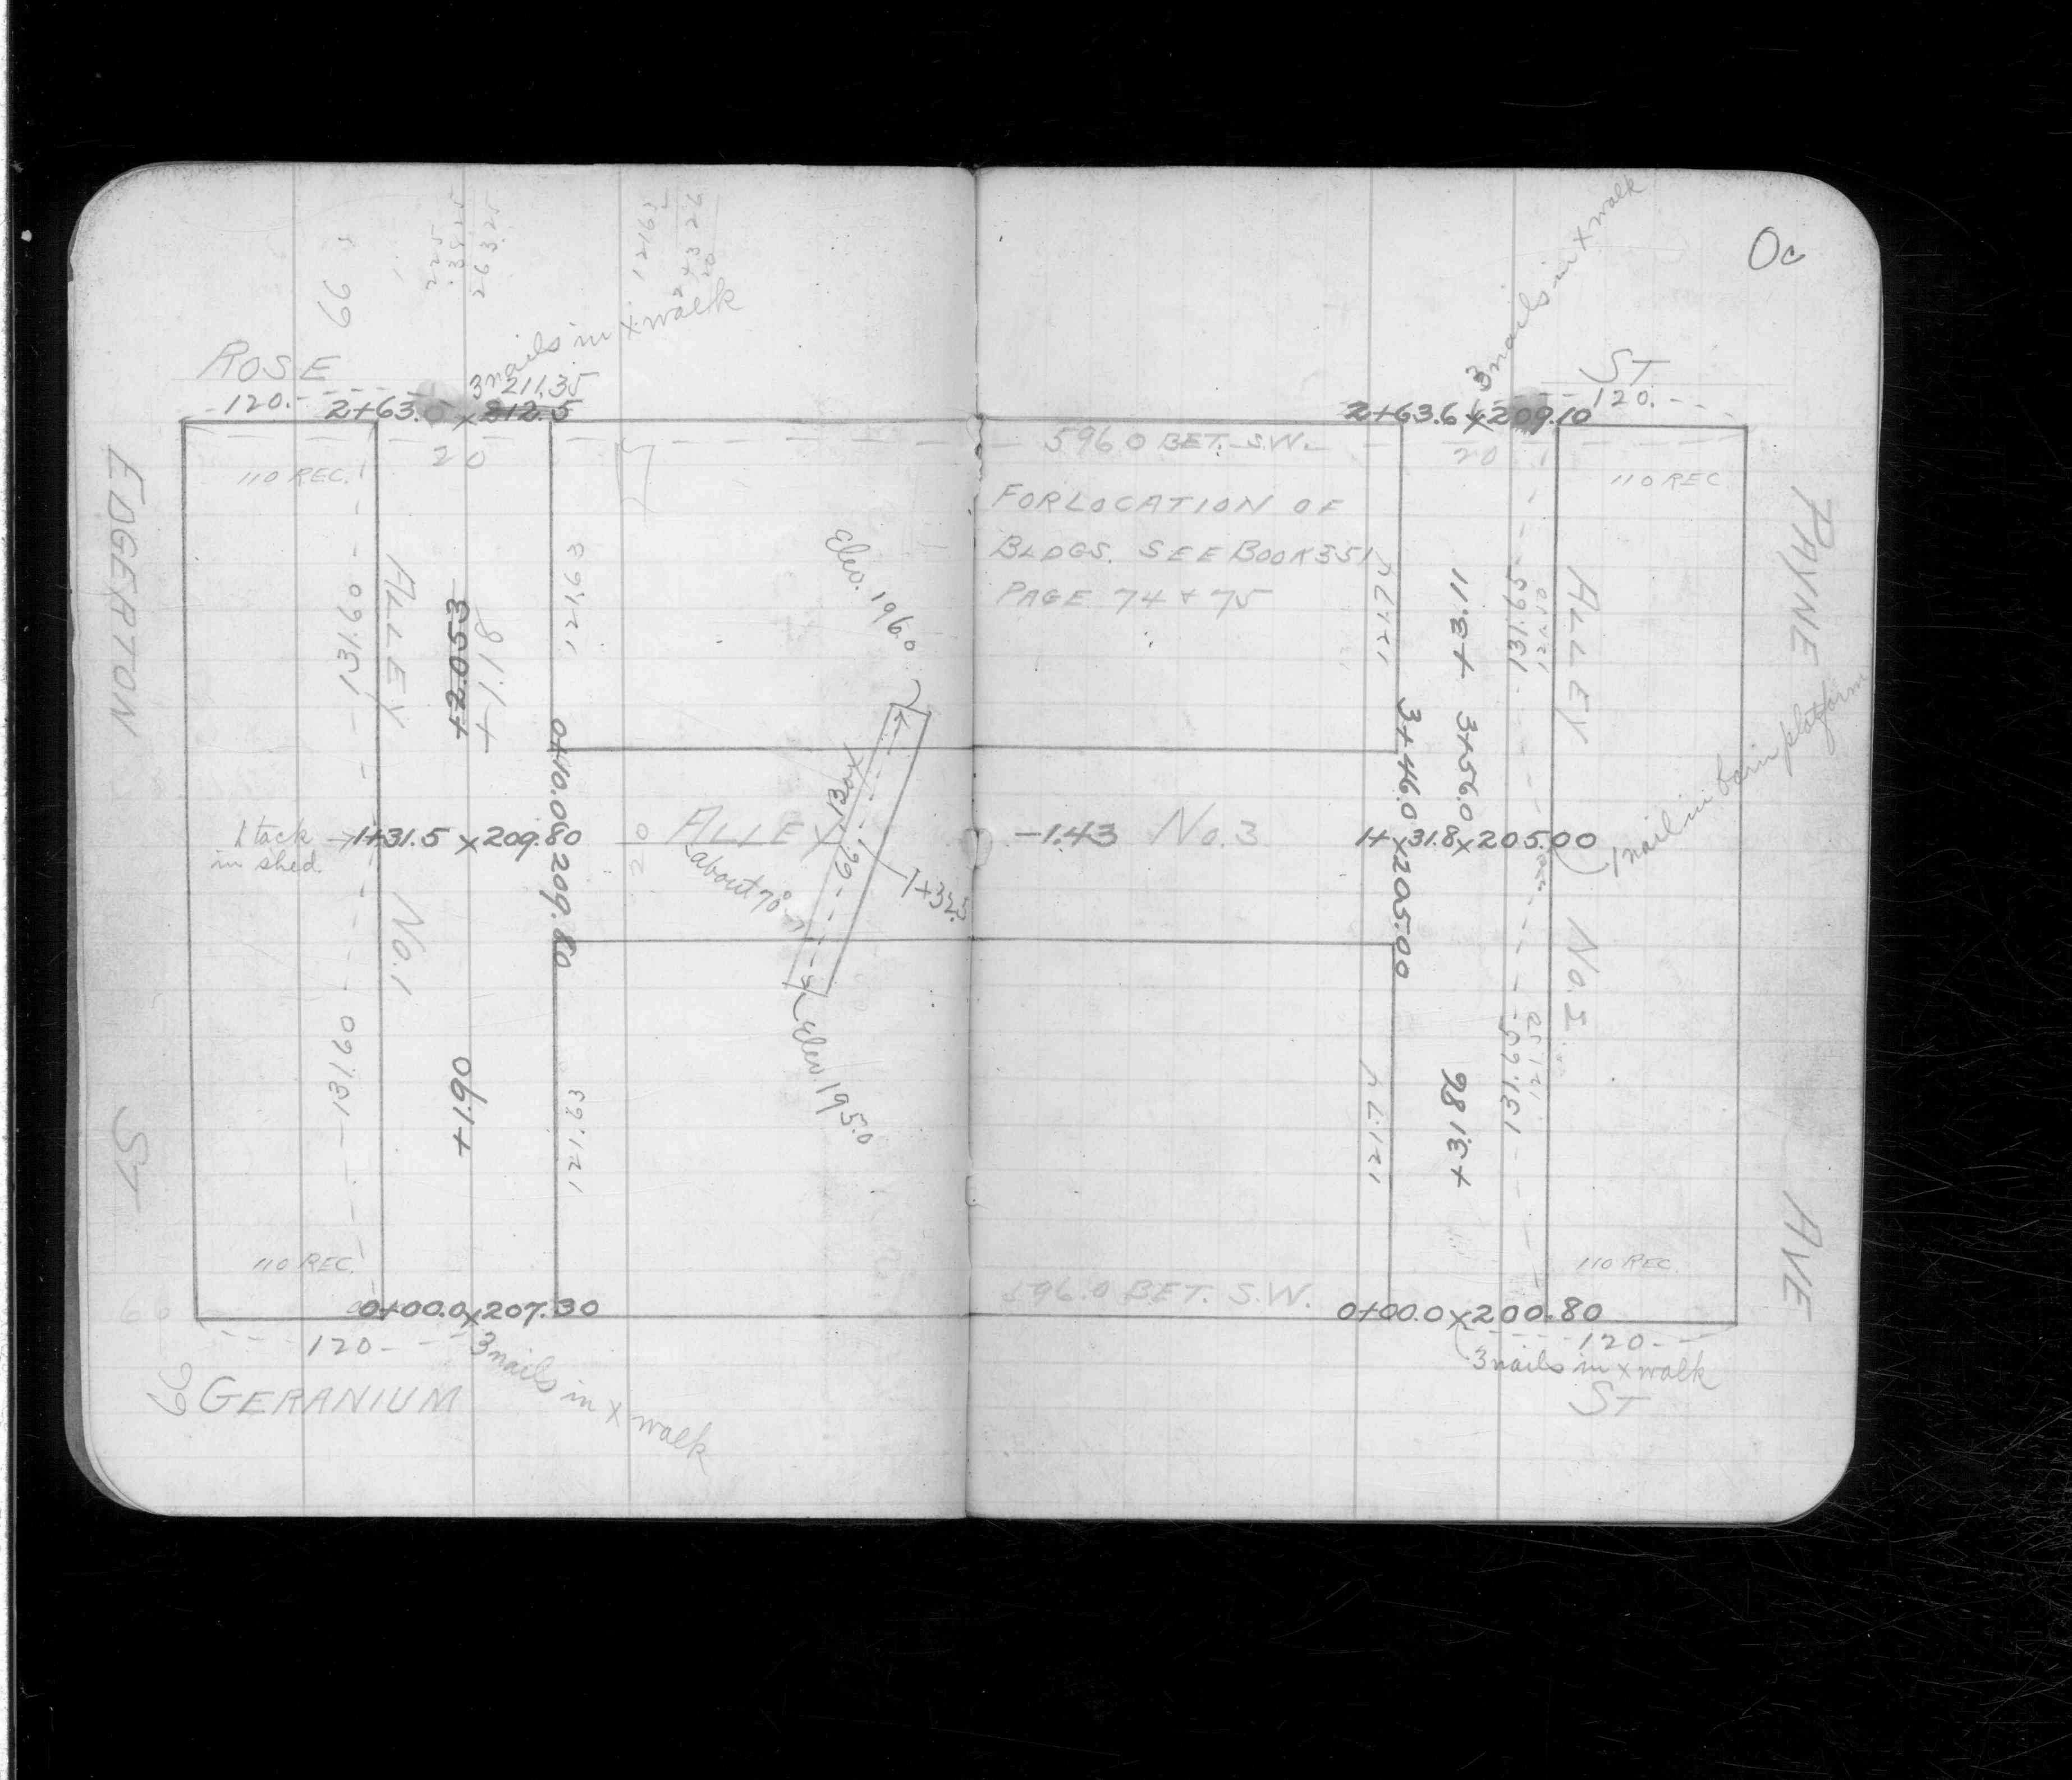 66
225
3825
263.25
12165
243 26
20
3 nails in x walk
3 nails in x walk
Oc
ROSE
ST
211.35
120.
2+63. x 212.5
2+63.6 x 209.10
120.
110 REC.
20
596.0 BET. S.W.
20
110 REC
FOR LOCATION OF
BLDGS. SEE BOOK 351
PAGE 74 & 75
EDGERTON
ST
131.60
ALLEY
No.1
+2.053
+1.18
121.63
Elev. 196.0
121.72
+3.11
131.65
121.50
ALLEY
No. 2
PAYNE
AVE
1 tack
in shed.
1+31.5 x 209.80
0+10.0 x 209.80
20
ALLEY
Box
66
about 70°
1+32.5
-1.43
No. 3
3+46.0 x 205.00
3+56.0
1+31.8 x 205.00
1 nail in barn platform
131.60
+1.90
121.63
Elev 195.0
121.72
+3.18
131.65
121.50
110 REC.
596.0 BET. S.W.
110 REC.
0+00.0 x 207.30
0+00.0 x 200.80
120-
3 nails in x walk
120-
3 nails in x walk
66
GERANIUM
ST